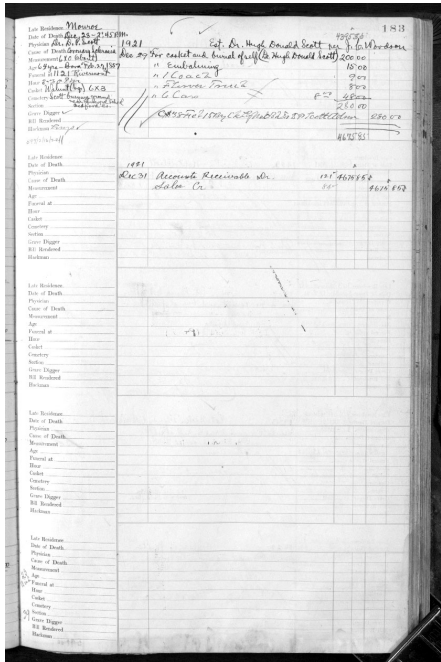 183
Late Residence Monroe
Date of Death Dec. 28 - 2:45 P.M.
Physician Dr. D. P. Scott
Cause of Death
Measurement
Age 64 yrs - Born Feb. 22, 1857
Funeral at 1121 Rivermont
Hour
Casket Walnut 6x3
Cemetery Scott burying ground
Section
Grave Digger
Bill Rendered
Hackman
1921 Est. Dr. Hugh Donald Scott per J. C. Woodson
Dec. 29 For casket and burial of self (Dr. Hugh Donald Scott) 200.00
" Embalming 15.00
" 1 Coach 9.00
" Flower Truck 8.00
" 6 Cars 8.00 48.00
280.00
280.00
4675.85
Late Residence
Date of Death
Physician
Cause of Death
Measurement
Age
Funeral at
Hour
Casket
Cemetery
Section
Grave Digger
Bill Rendered
Hackman
1921
Dec 31 Accounts Receivable Dr. 121 4675 85
Sales Cr. 4675 85
Late Residence
Date of Death
Physician
Cause of Death
Measurement
Age
Funeral at
Hour
Casket
Cemetery
Section
Grave Digger
Bill Rendered
Hackman
Late Residence
Date of Death
Physician
Cause of Death
Measurement
Age
Funeral at
Hour
Casket
Cemetery
Section
Grave Digger
Bill Rendered
Hackman
Late Residence
Date of Death
Physician
Cause of Death
Measurement
Age
Funeral at
Hour
Casket
Cemetery
Section
Grave Digger
Bill Rendered
Hackman